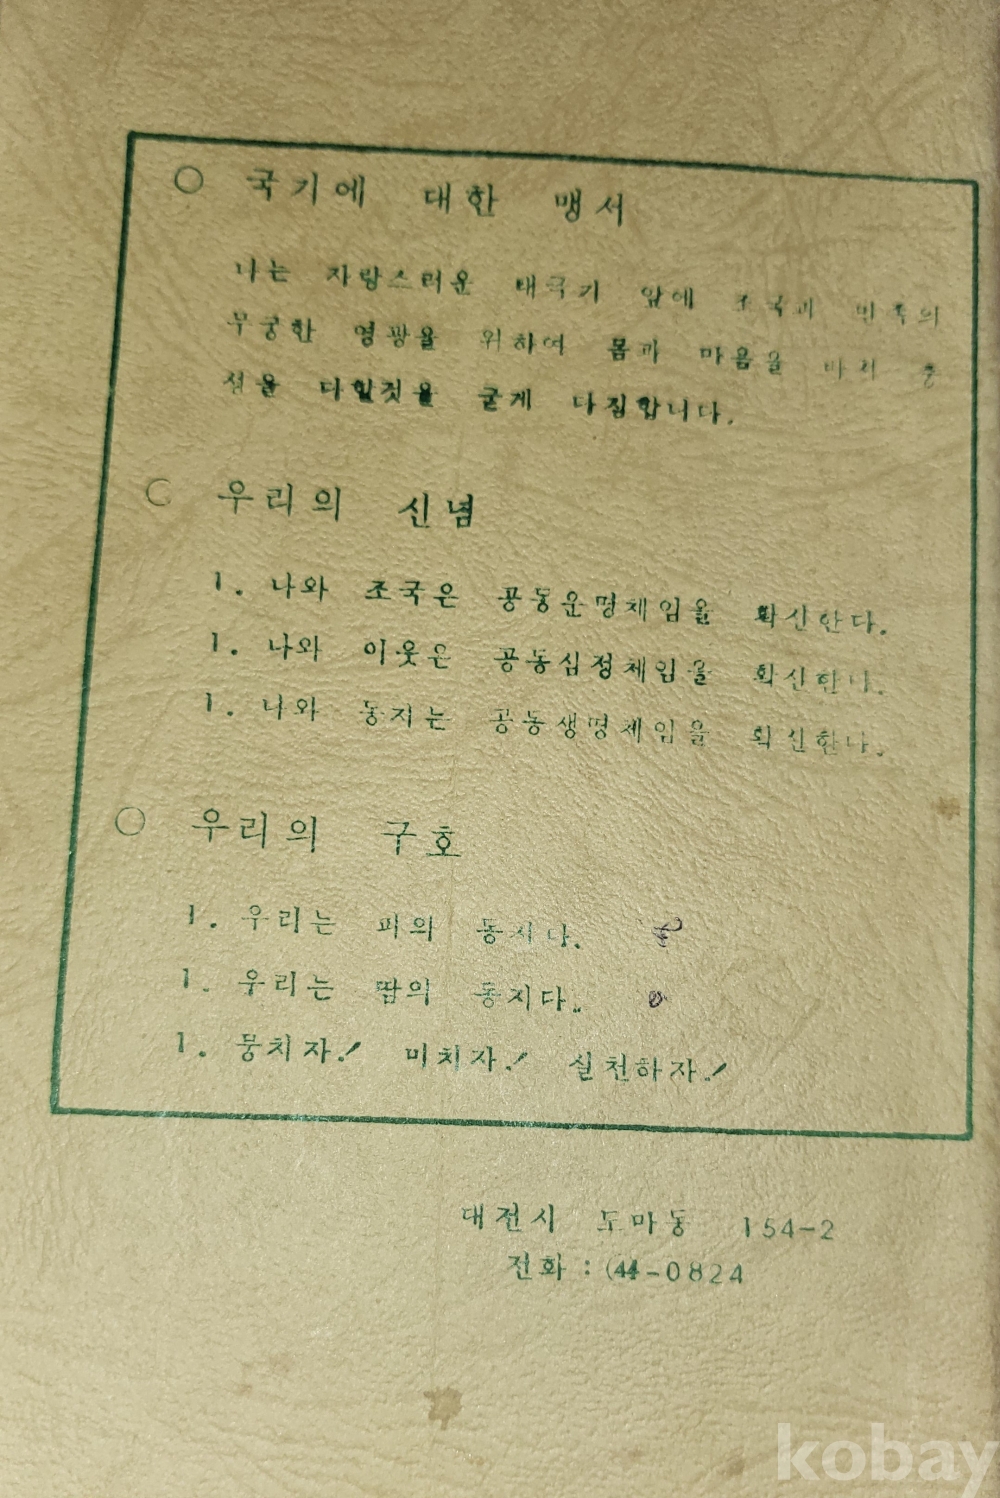 ○ 국기에 대한 맹서
나는 자랑스러운 태극기 앞에 조국과 민족의
무궁한 영광을 위하여 몸과 마음을 바쳐 충
성을 다할것을 굳게 다짐합니다.
○ 우리의 신념
1. 나와 조국은 공동운명체임을 확신한다.
1. 나와 이웃은 공동심정체임을 확신한다.
1. 나와 동지는 공동생명체임을 확신한다.
○ 우리의 구호
1. 우리는 피의 동지다.
1. 우리는 땀의 동지다.
1. 뭉치자! 미치자! 실천하자!
대전시 도마동 154-2
전화 : (44-0824
kobay